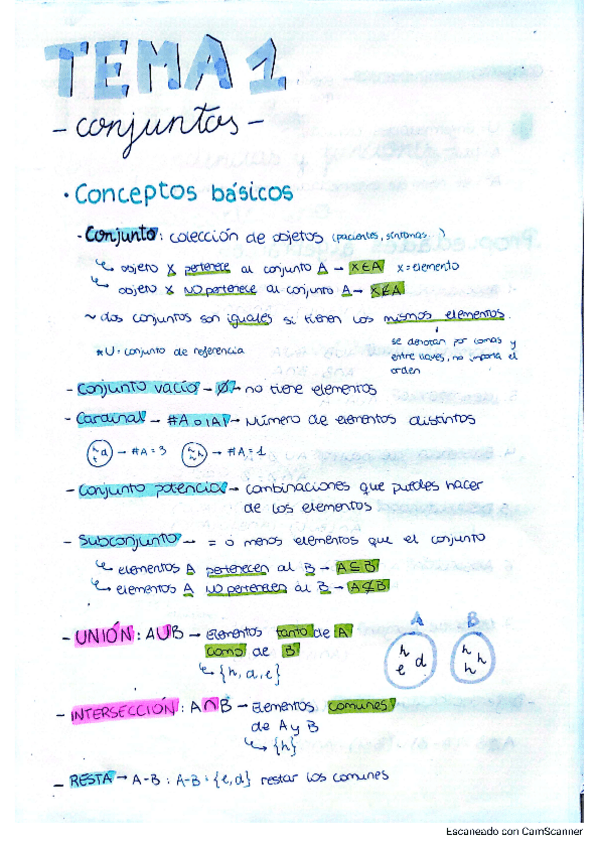 TEMA 1
- conjuntos -
· Conceptos básicos
- Conjunto: colección de objetos (pacientes, síntomas...)
↳ objeto X pertenece al conjunto A → X∈A x = elemento
↳ objeto X NO pertenece al conjunto A → X∉A
~ dos conjuntos son iguales si tienen los mismos elementos.
se denotan por comas y
entre llaves, no importa el
orden
* U = conjunto de referencia
- Conjunto vacío - Ø - no tiene elementos
- Cardinal - #A o |A| - Número de elementos distintos
→ #A = 3 → #A = 1
- Conjunto potencia → combinaciones que puedes hacer
de los elementos
- Subconjunto → = ó menos elementos que el conjunto
↳ elementos A pertenecen al B → A⊆B
↳ elementos A NO pertenecen al B → A⊈B
- UNIÓN: A∪B → elementos tanto de A
como de B
↳ {h, d, e}
A B
h e d h h h
- INTERSECCIÓN: A∩B - Elementos comunes
de A y B
↳ {h}
- RESTA → A-B : A-B = {e, d} restar los comunes
Escaneado con CamScanner